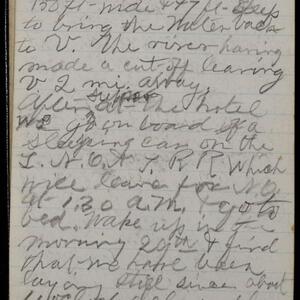 150 ft. wide & 47 ft. deep
to bring the water back
to V. The river having
made a cut off leaving
V 2 mi. away.
After supper at the hotel
we go on board of a
sleeping car on the
L. N. O. & T. R R which
will leave for N.O.
at 1.30 A.M. & go to
bed. Wake up in the
morning 20th & find
that we have been
laying still since about